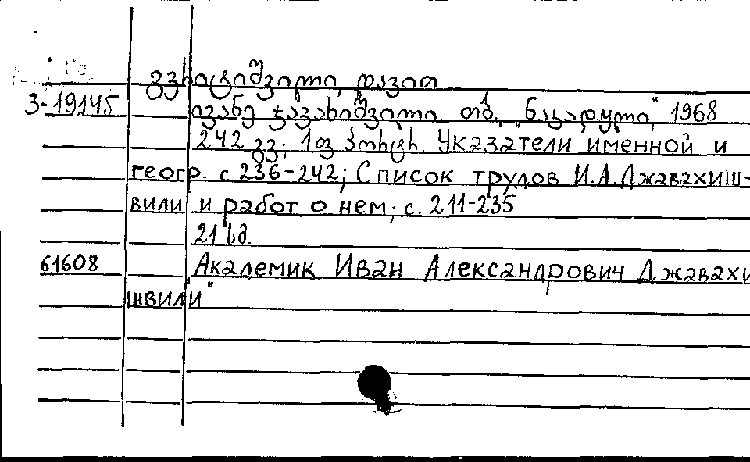 კვხატიშვილი, დავით
3-19145 ივანე ჯავახიშვილი თბ. "ნაკადული", 1968
242 გვ; 1ფ პორტრ. Указатели именной и
геогр. с 236-242; Список трудов И.А.Джавахиш-
вили и работ о нем; с. 211-235
61608 "Академик Иван Александрович Джавахи
швили"